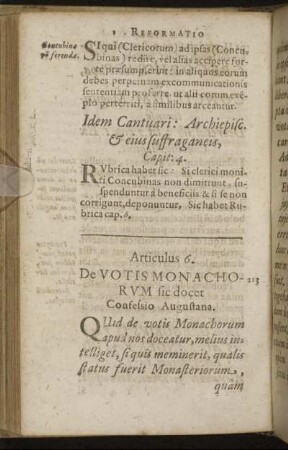 REFORMATIO
Concubinæ
nõ ferendæ.
SI qui (Clericorum) ad ipsas (Concu-
binas) redire, vel alias accipere for-
te præsumpserint: in aliquos eorum
debes perpetuam excommunicationis
sententiam proferre, ut alii eorum exẽ-
plo perterriti, à similibus arceantur.
Idem Cantuari: Archiepisc.
& eius suffraganeis,
Capit: 4.
RVbrica habet sic: Si clerici moni-
ti Concubinas non dimittunt, su-
spenduntur à beneficiis & si se non
corrigunt, deponuntur, Sic habet Ru-
brica cap. 6.
Articulus 6.
De VOTIS MONACHO-
RVM sic docet
Confessio Augustana.
QUid de votis Monachorum
apud nos doceatur, melius in-
telliget, si quis meminerit, qualis
status fuerit Monasteriorum,
quàm